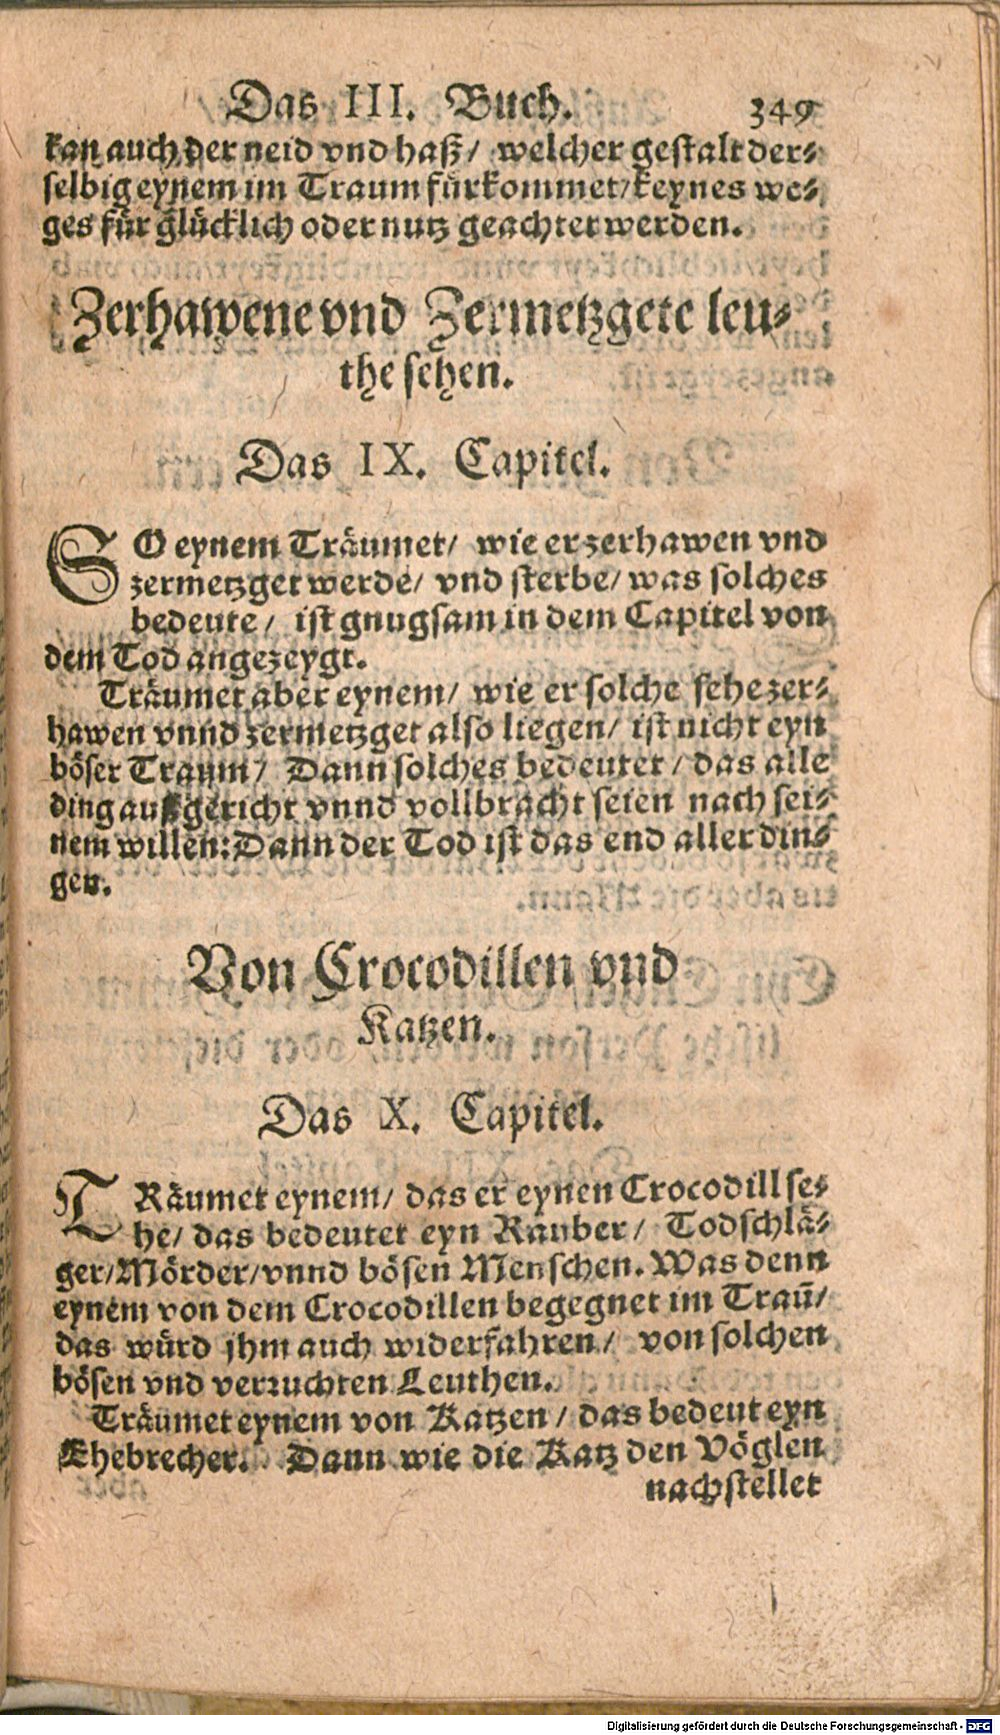 Das III. Buch. 349
kan auch der neid vnd haß / welcher gestalt der-
selbig eynem im Traum fürkommet / keynes we-
ges für glücklich oder nutz geachtet werden.
Zerhawene vnd Zermetzgete leu-
the sehen.
Das IX. Capitel.
SO eynem Träumet / wie er zerhawen vnd
zermetzget werde / vnd sterbe / was solches
bedeute / ist gnugsam in dem Capitel von
dem Tod angezeygt.
Träumet aber eynem / wie er solche sehe zer-
hawen vnnd zermetzget also liegen / ist nicht eyn
böser Traum / Dann solches bedeutet / das alle
ding außgericht vnnd vollbracht seien nach sei-
nem willen: Dann der Tod ist das end aller din-
gen.
Von Crocodillen vnd
Katzen.
Das X. Capitel.
TRäumet eynem / das er eynen Crocodill se-
he / das bedeutet eyn Rauber / Todschlä-
ger / Mörder / vnnd bösen Menschen. Was denn
eynem von dem Crocodillen begegnet im Traū /
das würd jhm auch widerfahren / von solchen
bösen vnd verruchten Leuthen.
Träumet eynem von Katzen / das bedeut eyn
Ehebrecher. Dann wie die Katz den Vöglen
nachstellet
Digitalisierung gefördert durch die Deutsche Forschungsgemeinschaft - DFG